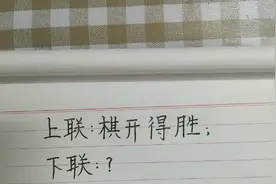 上联:棋开得胜;
下联:?